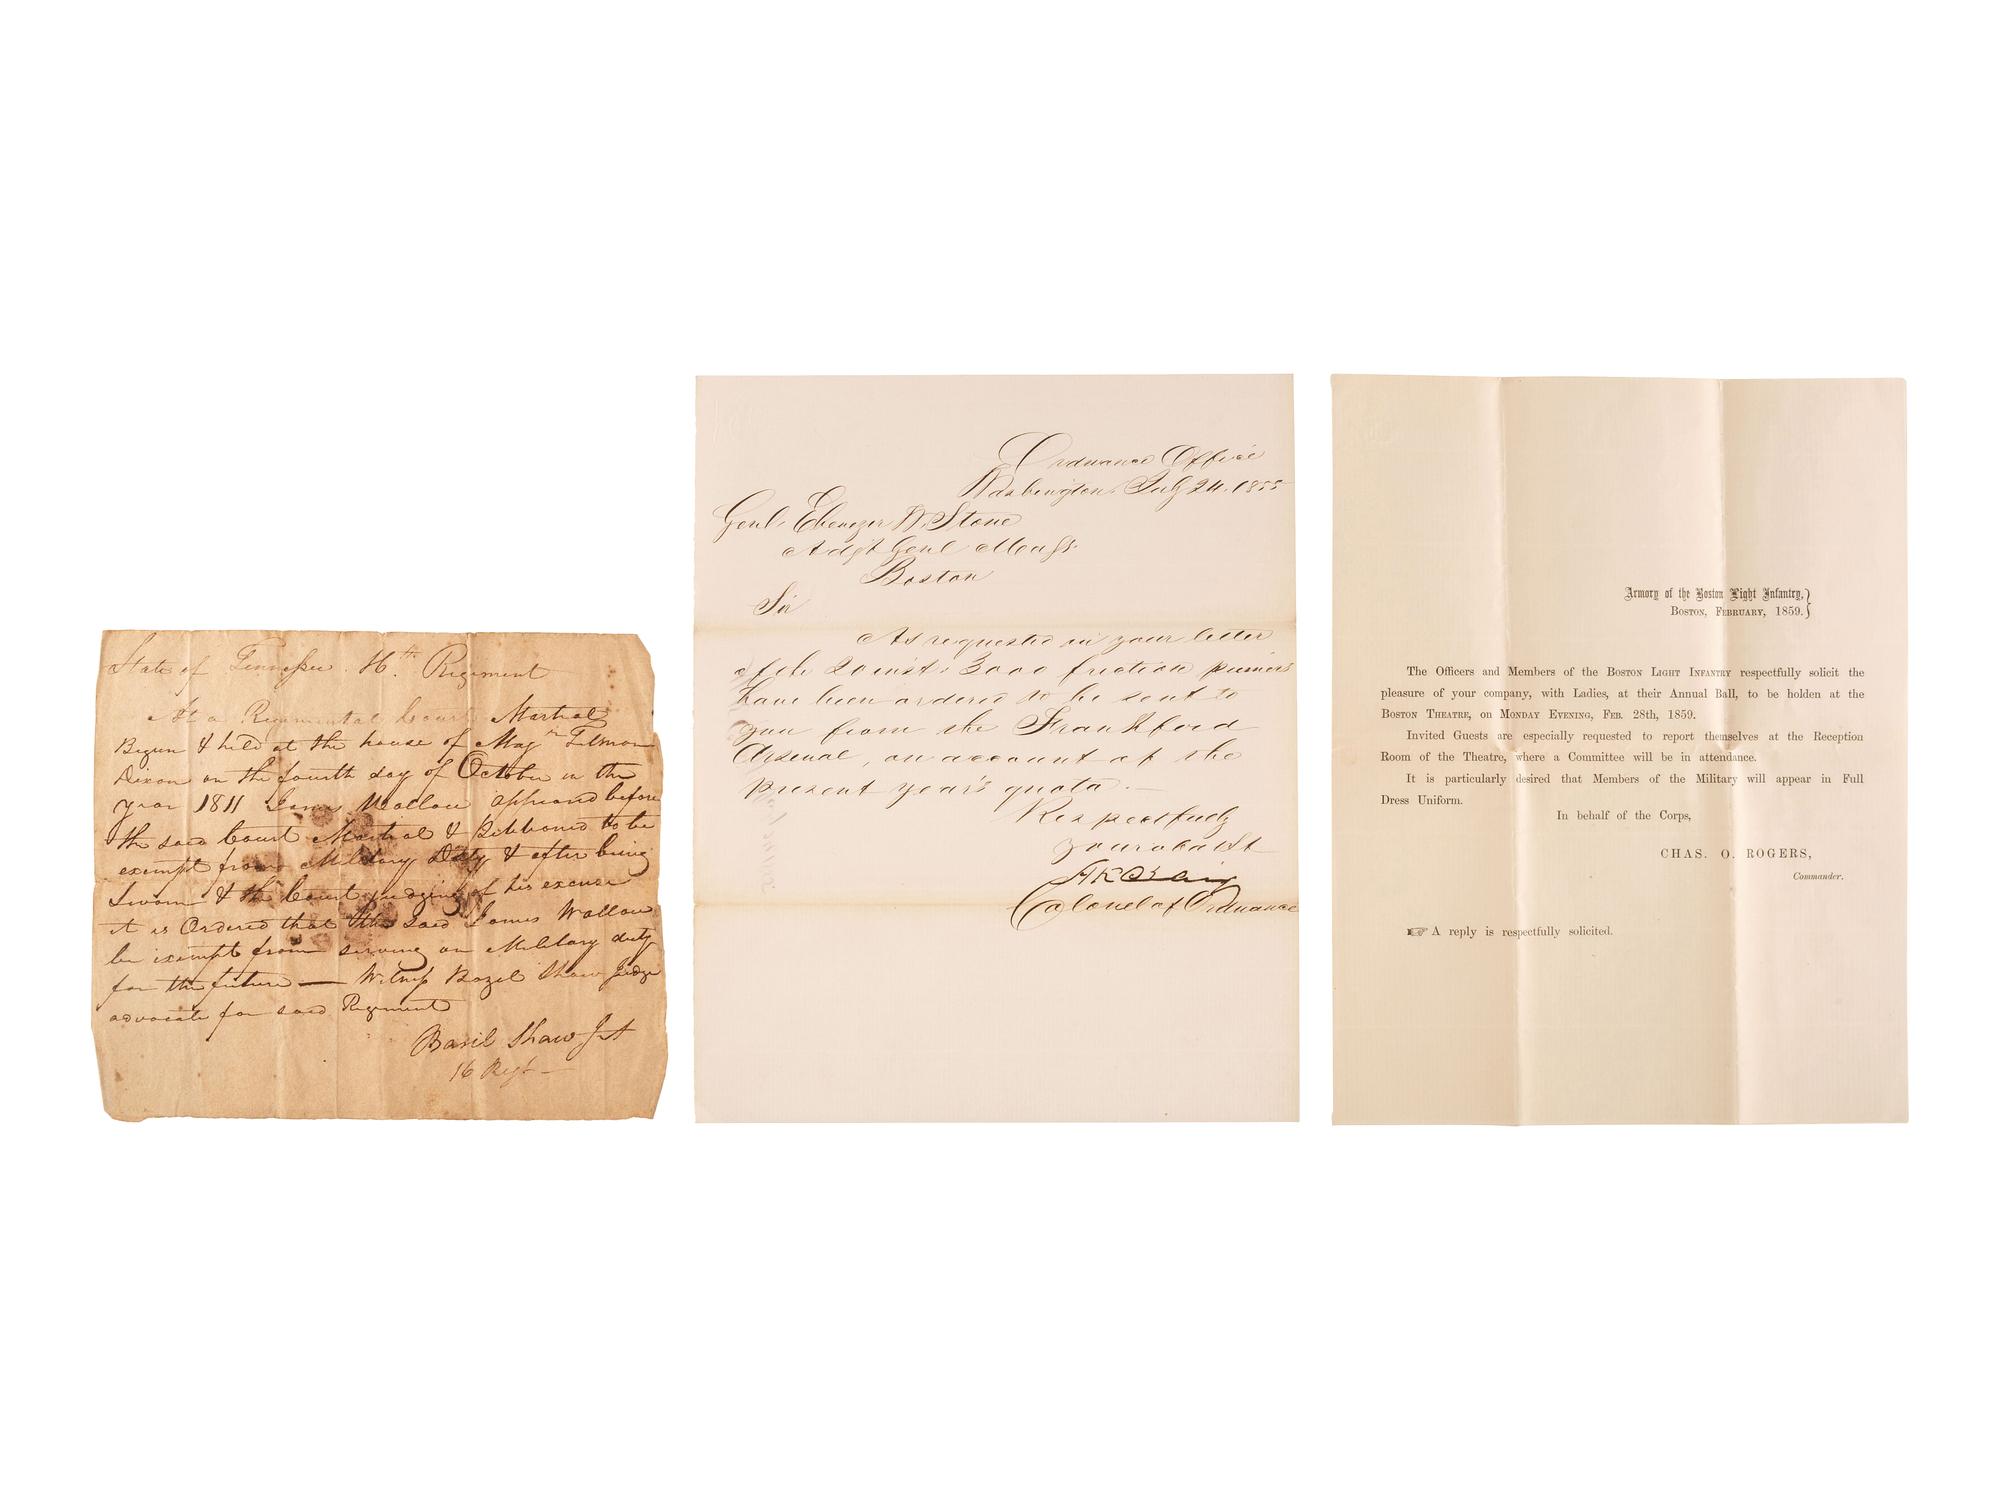 State of Tennessee 16th Regiment
At a Regimental Court Martial
Begun & held at the house of Majr Tilmon
Dixon on the fourth day of October in the
year 1811 James Wallace appeared before
the said Court Martial & Petitioned to be
exempt from Military Duty & after being
Sworn & the Court judging of his excuse
it is Ordered that the said James Wallace
be exempt from serving on Military duty
for the future — Witness Bazel Shaw Judge
advocate for said Regiment
Basil Shaw J A
16 Regt —
Ordnance Office
Washington, July 24, 1855
Genl. Ebenezer W. Stone
Adjt Genl Mass.
Boston
Sir
As requested in your letter
of the 20 inst. 3000 friction primers
have been ordered to be sent to
you from the Frankford
Arsenal, on account of the
present year's quota. —
Respectfully
Your ob St
H K Craig
Colonel of Ordnance
Armory of the Boston Light Infantry,}
Boston, February, 1859.}
The Officers and Members of the Boston Light Infantry respectfully solicit the
pleasure of your company, with Ladies, at their Annual Ball, to be holden at the
Boston Theatre, on Monday Evening, Feb. 28th, 1859.
Invited Guests are especially requested to report themselves at the Reception
Room of the Theatre, where a Committee will be in attendance.
It is particularly desired that Members of the Military will appear in Full
Dress Uniform.
In behalf of the Corps,
CHAS. O. ROGERS,
Commander.
☞ A reply is respectfully solicited.